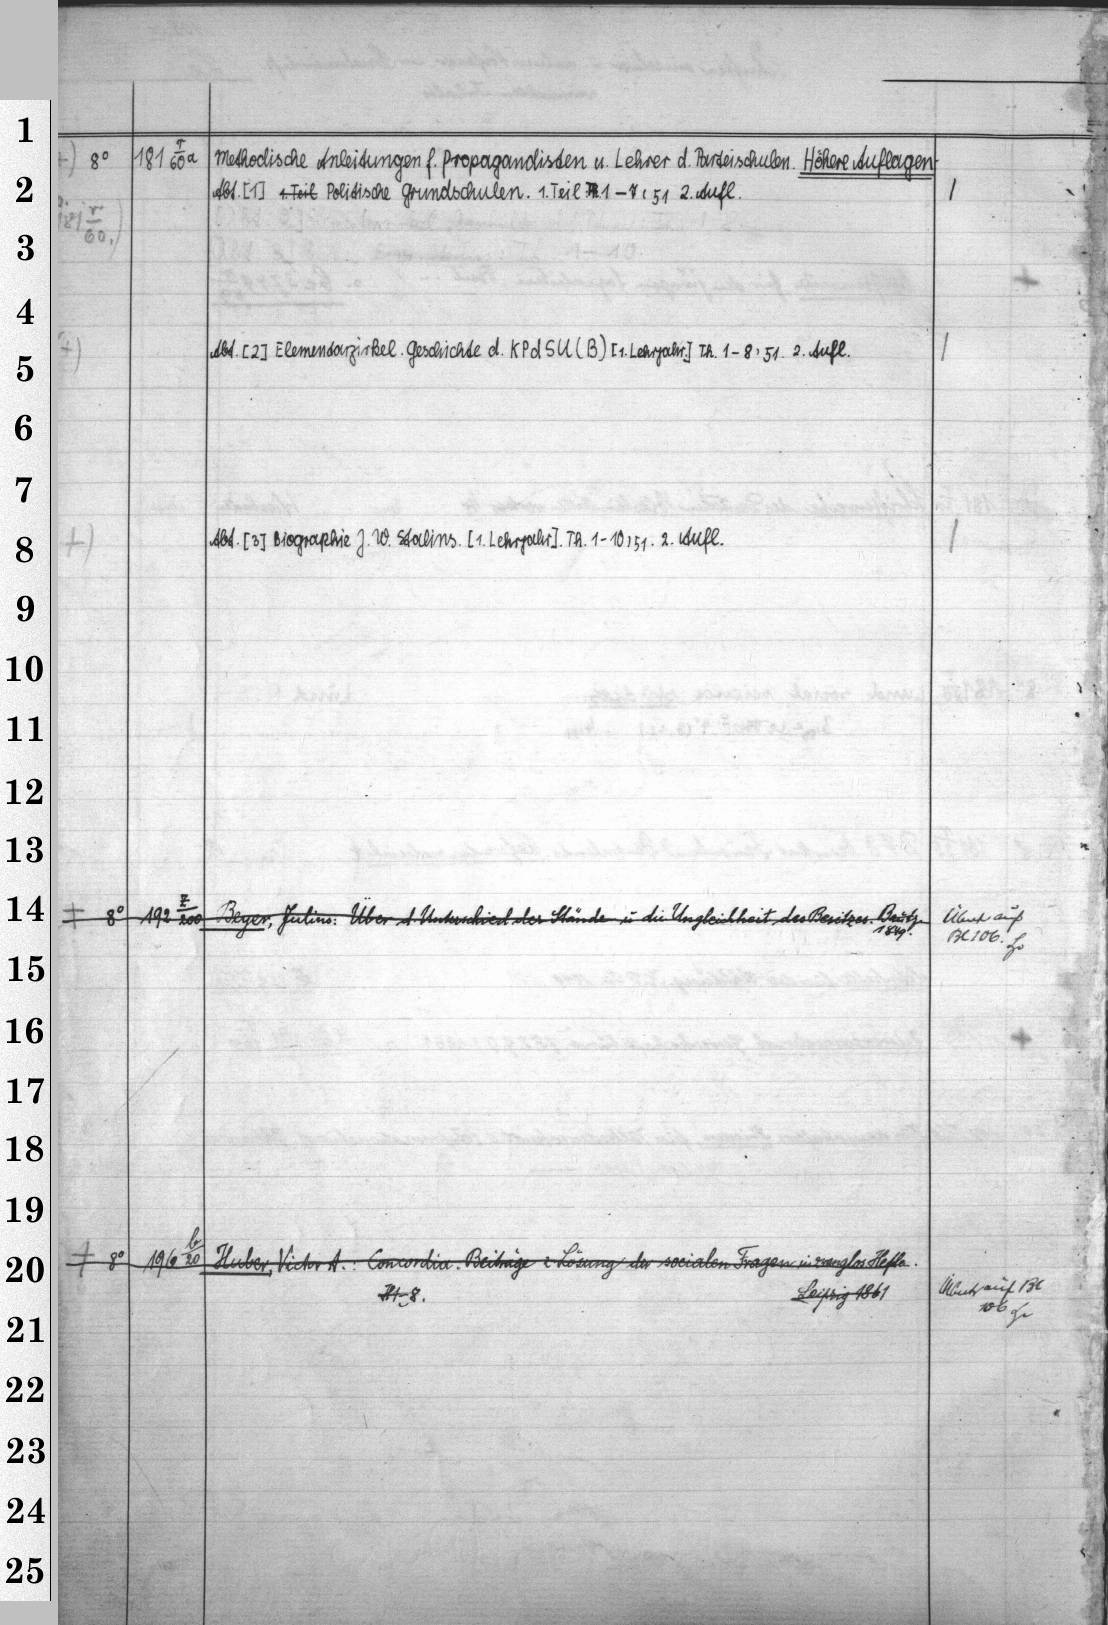 1
+) 8° 181 r/60a Methodische Anleitungen f. Propagandisten u. Lehrer d. Parteischulen. Höhere Auflagen
2
Abt. [1] 1. Teil Politische Grundschulen. 1. Teil Th. 1 – 7 : 51 2. Aufl. 1
181 r/60.)
3
4
+) Abt. [2] Elementarzirkel. Geschichte d. KPdSU (B) [1. Lehrjahr.] Th. 1–8 : 51. 2. Aufl. 1
5
6
7
8
+) Abt. [3] Biographie J. W. Stalins. [1. Lehrjahr]. Th. 1–10 : 51. 2. Aufl. 1
9
10
11
12
13
14
+ 8° 192 z/200 Beyer, Julius: Über d Unterschied der Stände u die Ungleichheit des Besitzes.
1849. Übertr auf
Bl 106.
15
16
17
18
19
20
+ 8° 196 b/20 Huber, Victor A.: Concordia. Beiträge z Lösung der socialen Fragen in zwanglos Heften.
H 1–8. Leipzig 1861 Übertr auf Bl
106
21
22
23
24
25